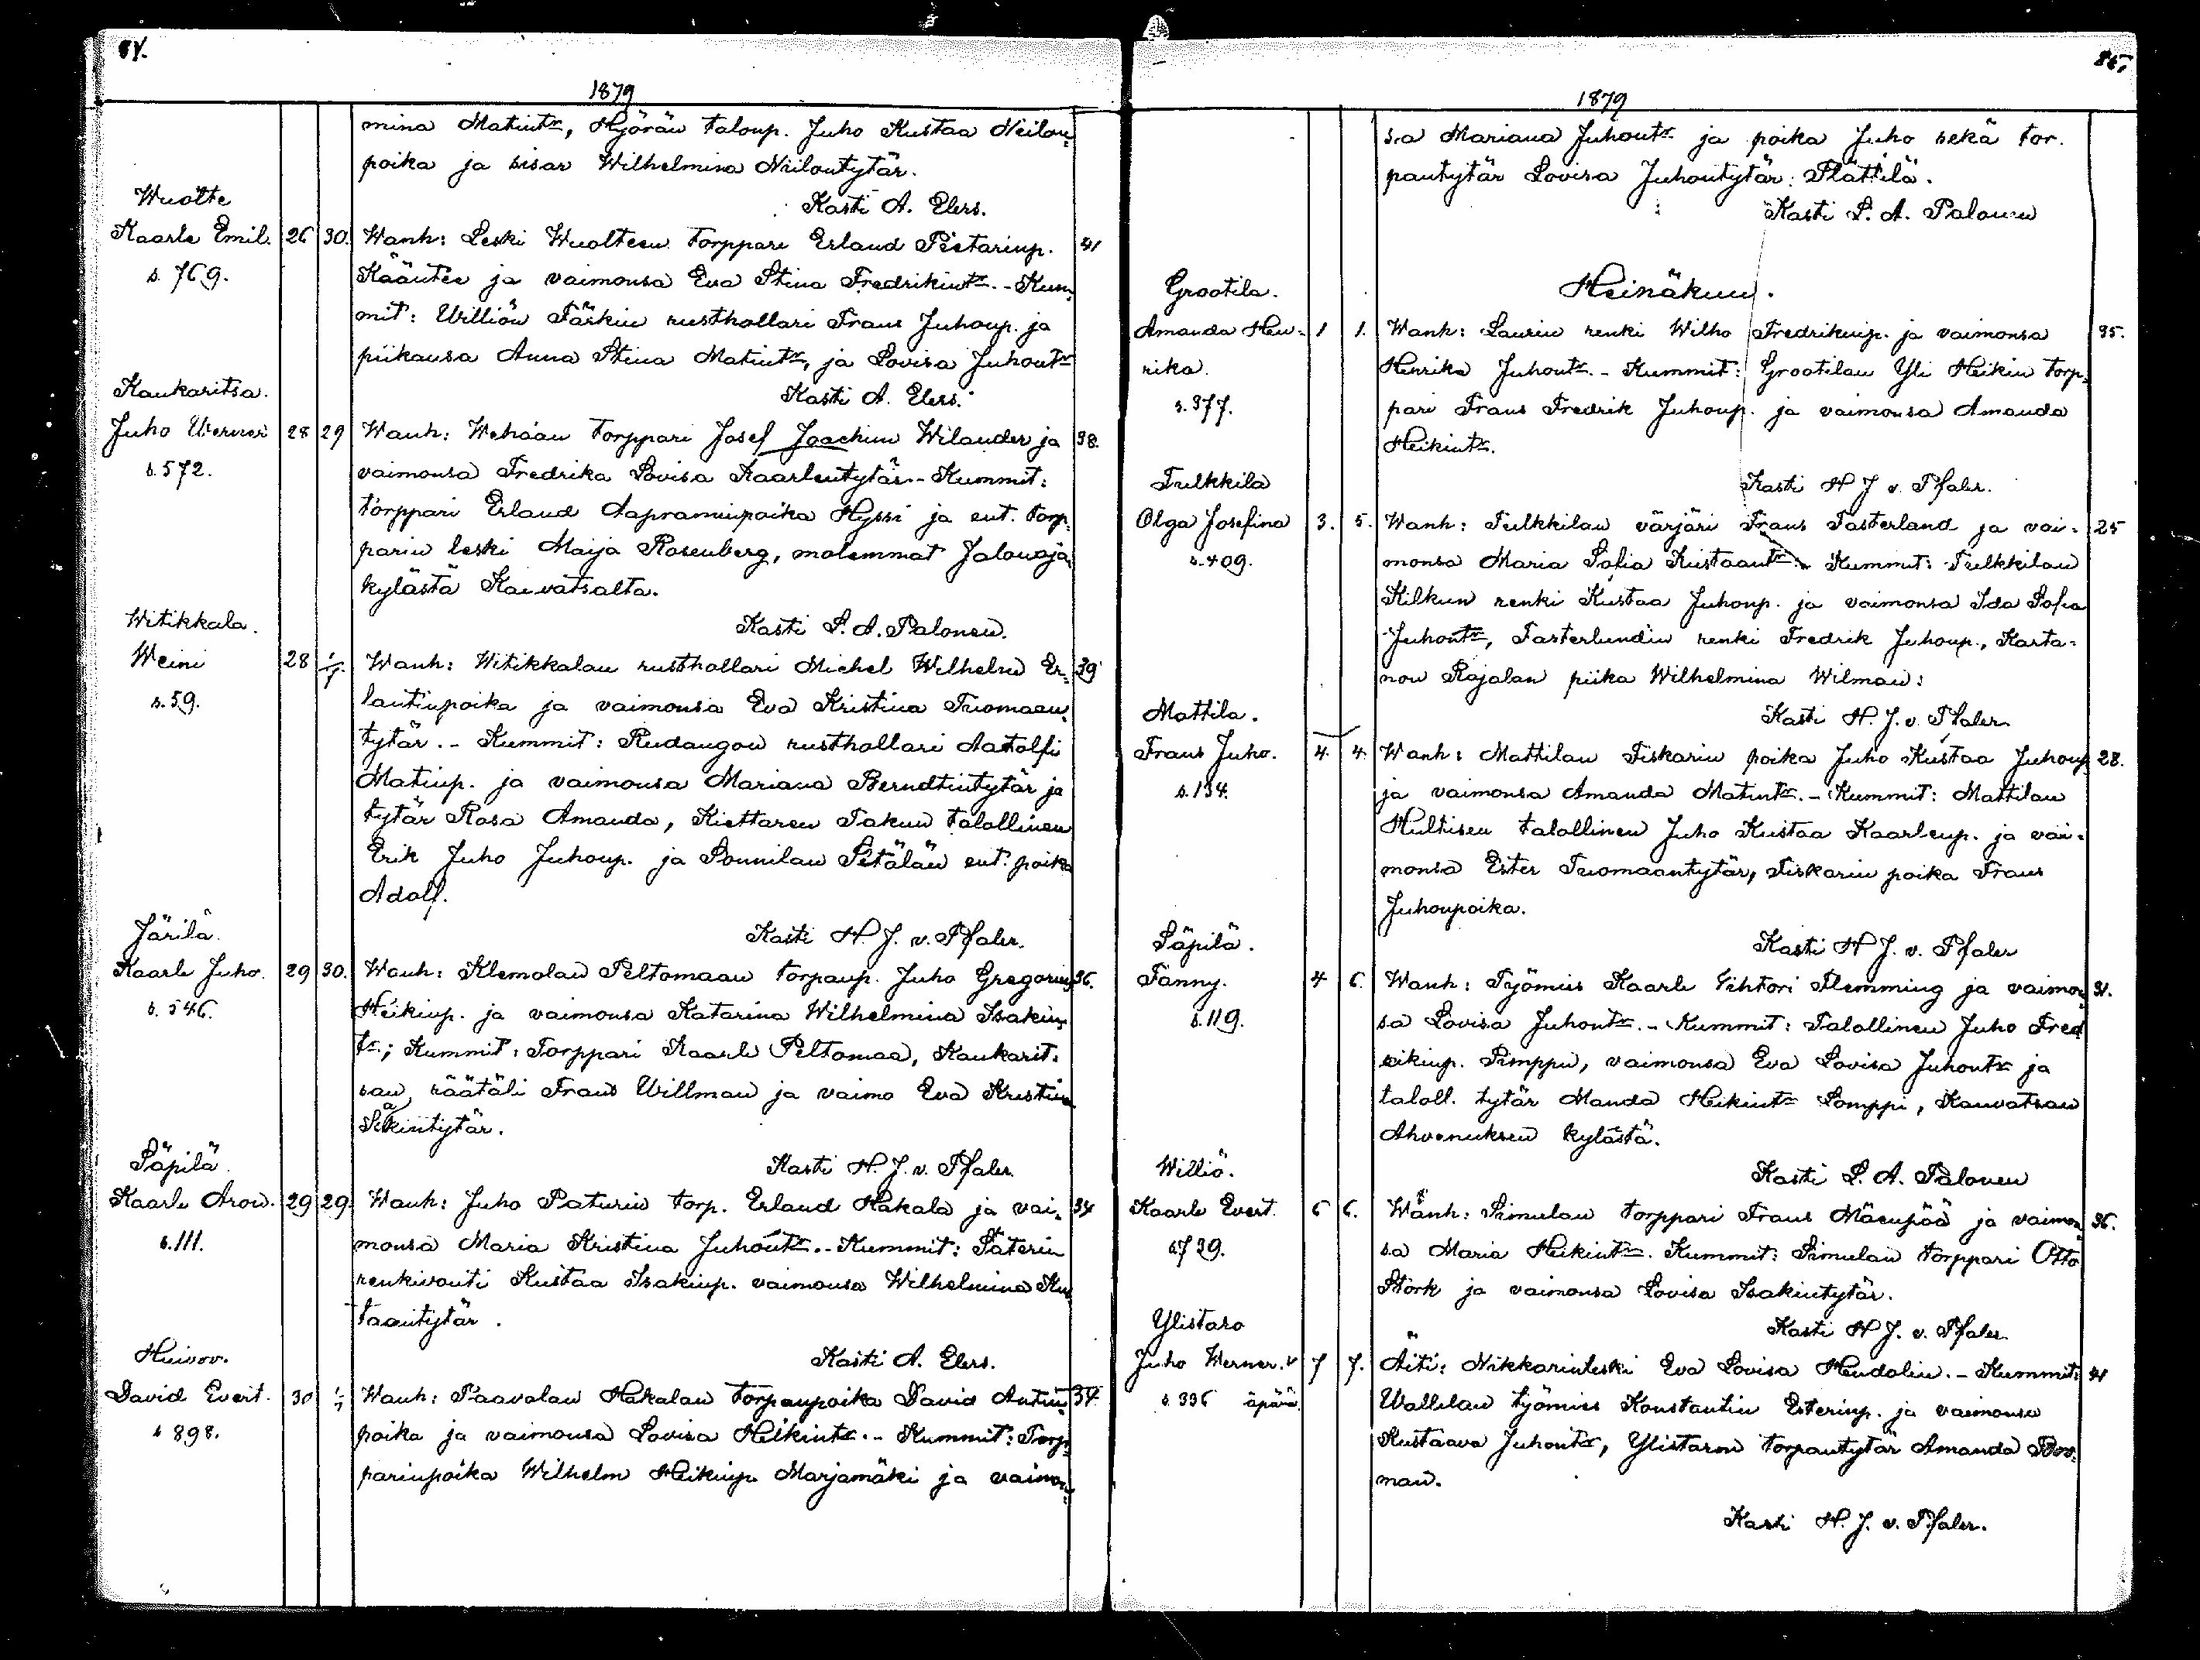 84.
1879
mina Matintr, Hyörän taloup. Juho Kustaa Niilon=
poika ja sisar Wilhelmina Niilontytär.
Kasti A. Elers.
Wuolte
Kaarle Emil. 26 30. Wanh: Leski Wuolteen torppari Erland Pietarinp. 41
s. 769. Kääntee ja vaimonsa Eva Stina Fredrikintr. - Kum=
mit: Williön Färkin rusthollari Frans Juhonp. ja
piikansa Anna Stina Matintr, ja Lovisa Juhontr
Kasti A. Elers.
Kaukaritsa.
Juho Werner 28 29 Wanh: Wehään torppari Josef Joachim Wilander ja 38.
s. 572. vaimonsa Fredrika Lovisa Kaarlentytär. - Kummit:
torppari Erland Aapraminpoika Hyssi ja ent. torp=
parin leski Maija Rosenberg, molemmat Jalonoja
kylästä Kauvatsalta.
Kasti L. A. Palonen.
Witikkala.
Weini 28 1/7. Wanh: Witikkalan rusthollari Michel Wilhelm Er= 39
s. 59. lantinpoika ja vaimonsa Eva Kristina Tuomaan=
tytär. - Kummit: Rudangon rusthollari Aatolfi
Matinp. ja vaimonsa Mariana Berndtintytär ja
tytär Rosa Amanda, Kiettaren Takun talollinen
Erik Juho Juhonp. ja Sonnilan Sitälän ent. poika
Adolf.
Kasti H. J. v. Pfaler.
Järilä.
Kaarle Juho. 29 30. Wanh: Klemolan Peltomaan torpanp. Juho Gregorius 36.
s. 546. Heikinp. ja vaimonsa Katarina Wilhelmina Isakin=
tr; Kummit: Torppari Kaarle Peltomaa, Kaukarit=
san räätäli Frans Willman ja vaimo Eva Kristina
Isakintytär.
Kasti H. J. v. Pfaler.
Säpilä.
Kaarle Aron. 29 29. Wanh: Juho Paturin torp. Erland Hakala ja vai= 34
s. 111. monsa Maria Kristina Juhontr. - Kummit: Säterin
renkivouti Kustaa Isakinp. vaimonsa Wilhelmina Kus=
taantytär.
Kasti A. Elers.
Huivov.
David Evert. 30 1/7 Wanh: Paavolan Hakalan torpanpoika David Antin= 34
s 898. poika ja vaimonsa Lovisa Heikintr. - Kummit: Torp=
parinpoika Wilhelm Heikinp. Marjamäki ja vaimon=
85.
1879
sa Mariana Juhontr ja poika Juho sekä tor.
pantytär Lovisa Juhontytär: Plättilä.
Kasti L. A. Palonen
Heinäkuu.
Grootila.
Amanda Hen= 1 1. Wanh: Laurin renki Wilho Fredrikinp. ja vaimonsa 35.
rika. Henrika Juhontr. - Kummit: Grootilan Yli Heikin torp=
s. 377. pari Frans Fredrik Juhonp. ja vaimonsa Amanda
Heikintr.
Kasti H J v. Pfaler.
Tulkkila
Olga Josefina 3. 5. Wanh: Tulkkilan värjäri Frans Fasterland ja vai= 25
s. 409. monsa Maria Sofia Kustaantr. Kummit: Tulkkilan
Kilkun renki Kustaa Juhonp. ja vaimonsa Ida Sofia
Juhontr, Fasterlundin renki Fredrik Juhonp., Karta=
non Rajalan piika Wilhelmina Wilman:
Kasti H. J. v. Pfaler.
Mattila.
Frans Juho. 4. 4. Wanh: Mattilan Fiskarin poika Juho Kustaa Juhonp 28.
s. 134. ja vaimonsa Amanda Matintr. - Kummit: Mattilan
Hultisen talollinen Juho Kustaa Kaarlenp. ja vai=
monsa Ester Tuomaantytär, Fiskarin poika Frans
Juhonpoika.
Kasti H J. v. Pfaler
Säpilä.
Fanny. 4 6. Wanh: Työmies Kaarle Vihtori Flemming ja vaimon= 31.
s. 119. sa Lovisa Juhontr. - Kummit: Talollinen Juho Fred
rikinp. Pimppu, vaimonsa Eva Lovisa Juhontr ja
taloll. tytär Manda Heikintr Lomppi, Kauvatsan
Ahvenuksen kylästä.
Kasti L. A. Palonen
Williö.
Kaarle Evert. 6 6. Wanh: Simulan torppari Frans Mäenpää ja vaimon= 36.
s739. sa Maria Heikintr. Kummit: Simulan torppari Otto
Störk ja vaimonsa Lovisa Isakintytär.
Kasti H J. v. Pfaler.
Ylistaro
Juho Werner. v 7 7. Äiti: Nikkarinleski Eva Lovisa Hendolin. - Kummit: 41
s. 336 äpärä. Wallilan työmies Konstantin Esterinp. ja vaimonsa
Kustaava Juhontr, Ylistaron torpantytär Amanda Boo=
man.
Kasti H. J. v. Pfaler.